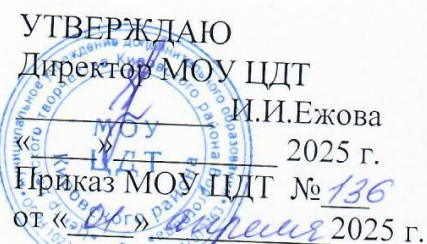 УТВЕРЖДАЮ
Директор МОУ ЦДТ
____________ И.И.Ежова
«_____»____________ 2025 г.
Приказ МОУ ЦДТ № 136
от « 01 » апреля 2025 г.
МОУ
ЦДТ